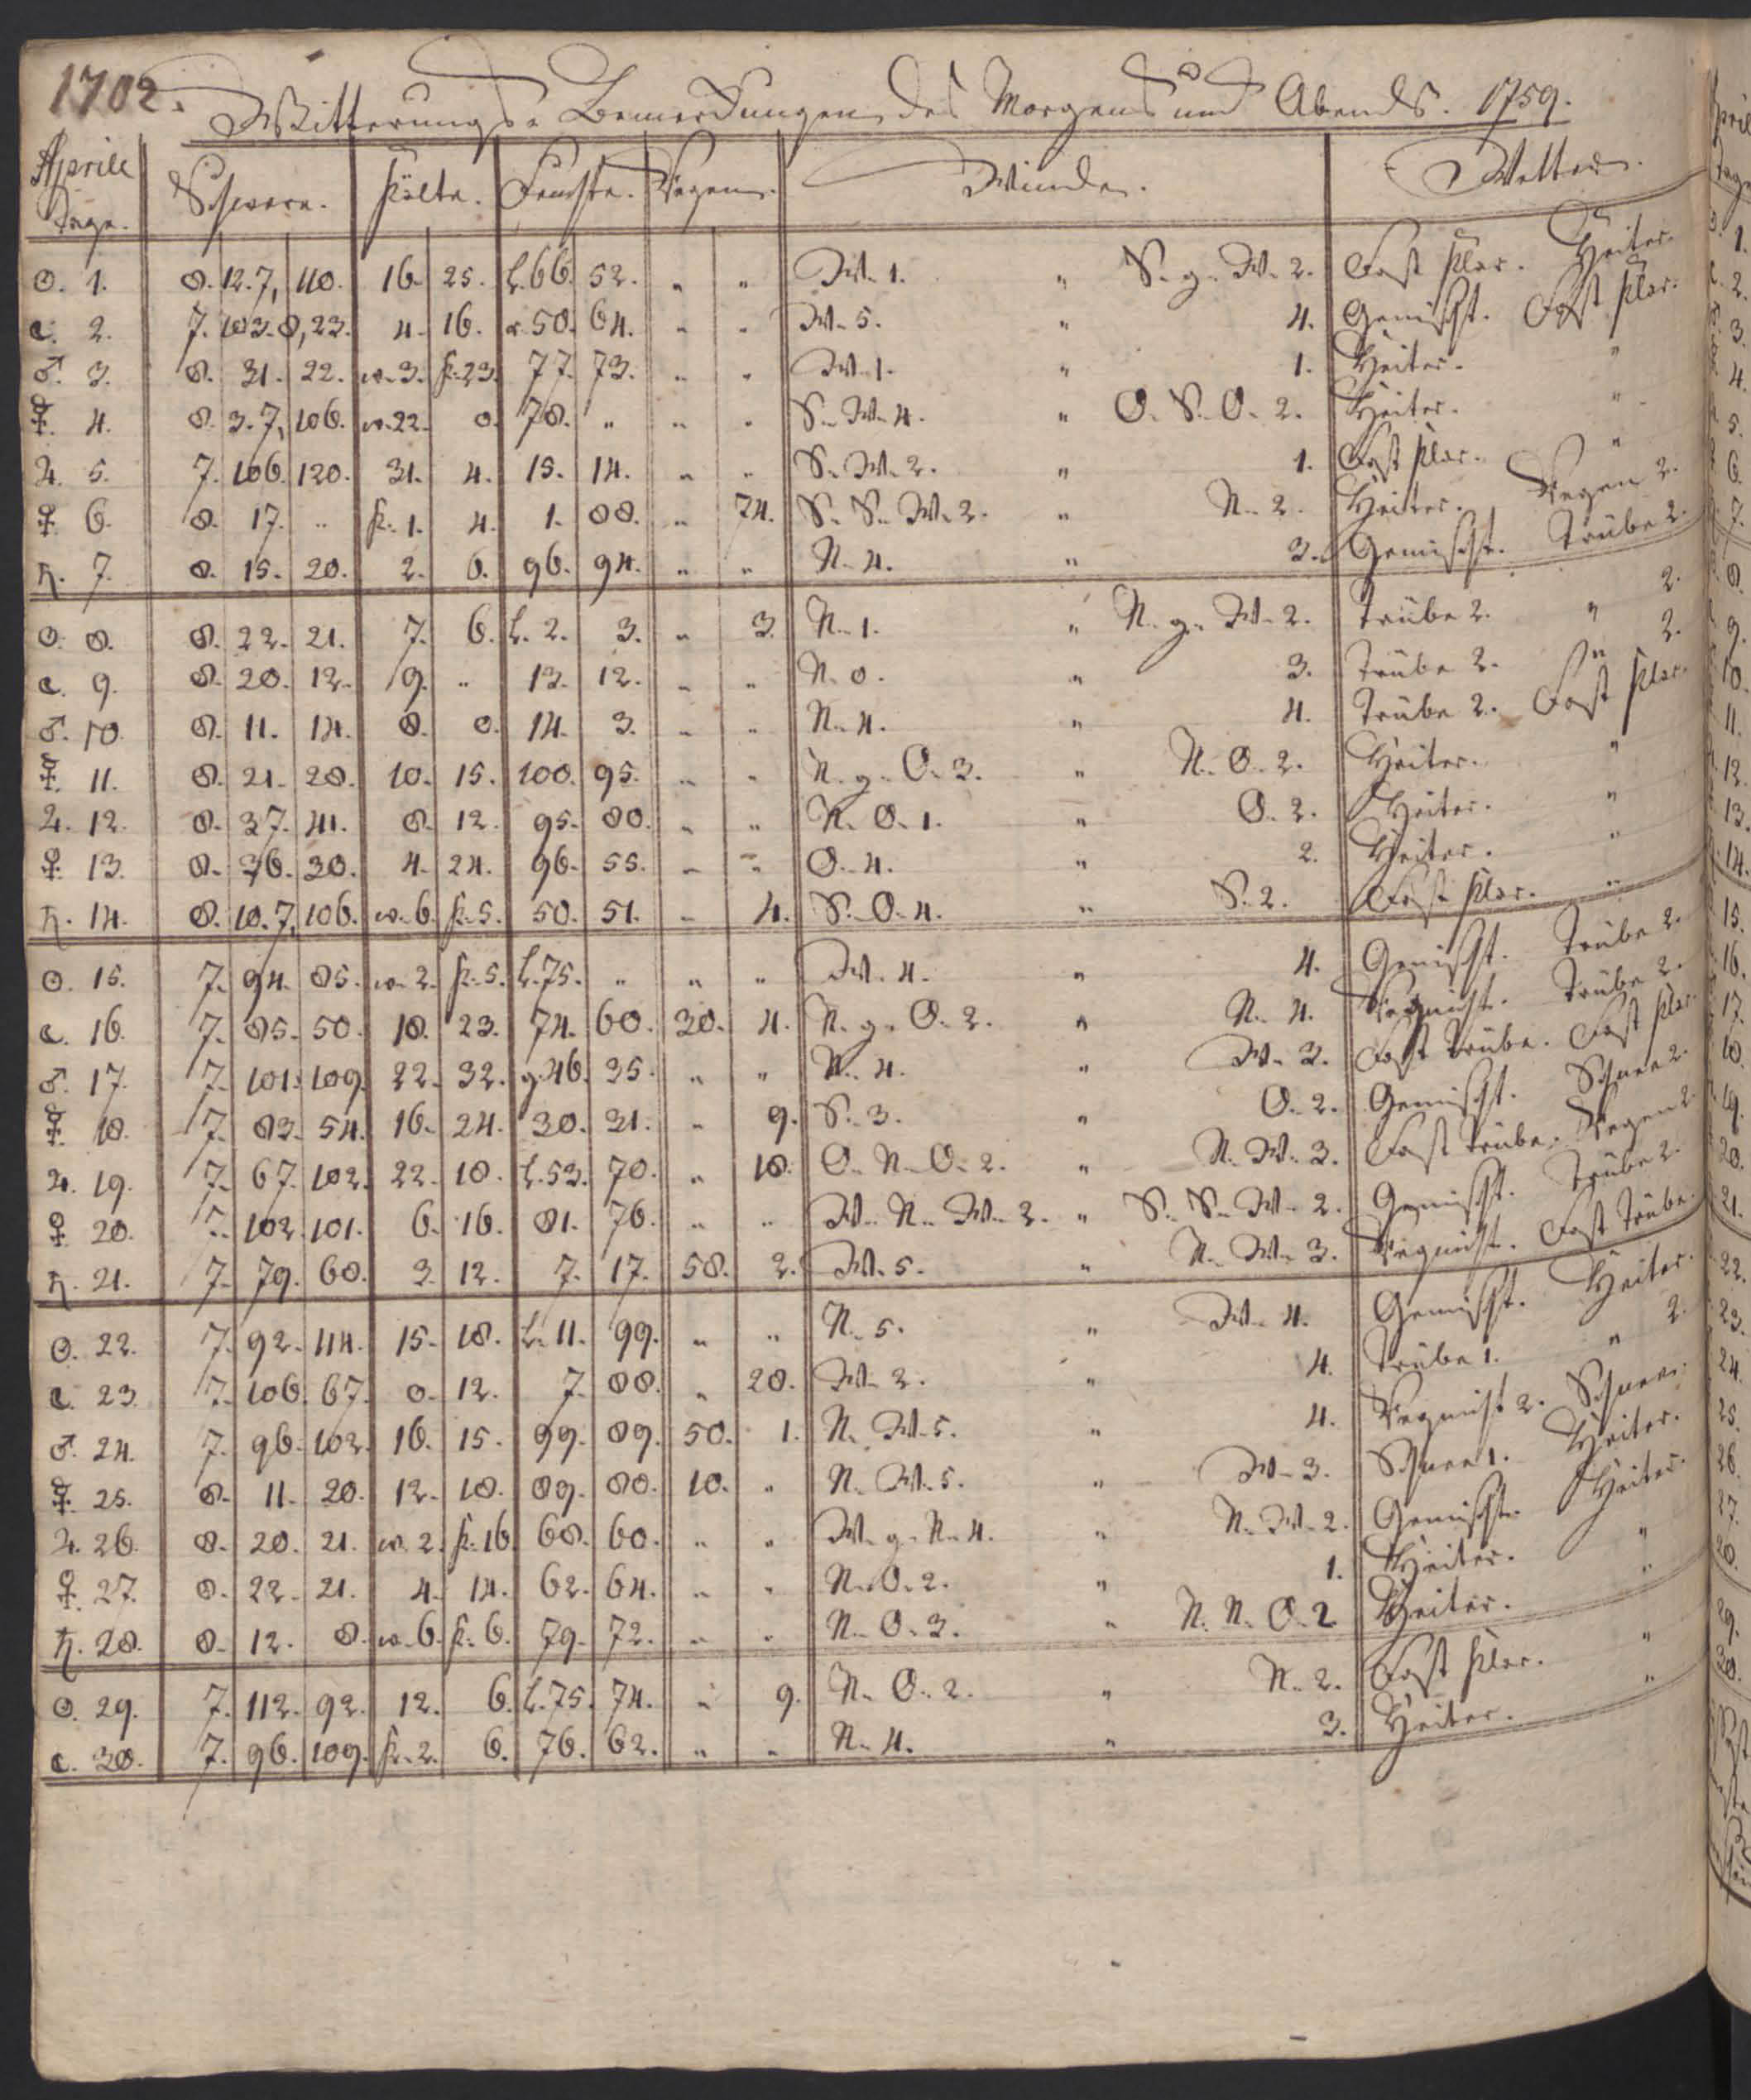 1702.
Witterungs-Bemerckungen des Morgens und Abends. 1759.
Aprill Tage. Schwere. Kälte. Feuchte. Regen. Winde. Wetter.
☉. 1. 8. 12. 7, 110. 16. 25. L. 66. 52. " " W. 1. " S. g. W. 2. Fast klar. Heiter.
☾. 2. 7. 103. 8, 23. 4. 16. 50. 64. " " W. 5. " 4. Gemischt. Fast klar.
♂. 3. 8. 31. 22. w. 3. k. 23. 77. 73. " " W. 1. " 1. Heiter. "
☿. 4. 8. 3. 7, 106. w. 22. 0. 78. " " " S. W. 4. " O. S. O. 2. Heiter. "
♃. 5. 7. 106. 120. 31. 4. 15. 14. " " S. W. 2. " 1. Fast klar. "
♀. 6. 8. 17. " k. 1. 4. 1. 88. " 74. S. S. W. 2. " N. 2. Heiter. Regen 2.
♄. 7. 8. 15. 20. 2. 6. 96. 94. " " N. 4. " 3. Gemischt. Trübe 2.
☉. 8. 8. 22. 21. 7. 6. L. 2. 3. " 3. N. 1. " N. g. W. 2. Trübe 2. " 2.
☾. 9. 8. 20. 12. 9. " 13. 12. " " N. 0. " 3. Trübe 2. " 2.
♂. 10. 8. 11. 14. 8. 0. 14. 3. " " N. 4. " 4. Trübe 2. Fast klar.
☿. 11. 8. 21. 28. 10. 15. 100. 95. " " N. g. O. 3. " N. O. 2. Heiter. "
♃. 12. 8. 37. 41. 8. 12. 95. 80. " " N. O. 1. " O. 2. Heiter. "
♀. 13. 8. 36. 30. 4. 24. 96. 55. " " O. 4. " 2. Heiter. "
♄. 14. 8. 10. 7, 106. w. 6. k. 5. 50. 51. " 4. S. O. 4. " S. 2. Fast klar. "
☉. 15. 7. 94. 85. w. 2. k. 5. L. 75. " " " W. 4. " 4. Gemischt. Trübe 2.
☾. 16. 7. 85. 50. 18. 23. 74. 60. 30. 4. N. g. O. 2. " N. 4. Regnicht. Trübe 2.
♂. 17. 7. 101. 109. 22. 32. g. 46. 35. " " N. 4. " W. 3. Fast Trübe. Fast klar.
☿. 18. 7. 83. 54. 16. 24. 30. 31. " 9. S. 3. " O. 2. Gemischt. Schnee 2.
♃. 19. 7. 67. 102. 22. 18. L. 53. 70. " 18. O. N. O. 2. " N. W. 3. Fast trübe. Regen 2.
♀. 20. 7. 102. 101. 6. 16. 81. 76. " " W. N. W. 2. " S. S. W. 2. Gemischt. Trübe 2.
♄. 21. 7. 79. 60. 3. 12. 7. 17. 58. 2. W. 5. " N. W. 3. Regnicht. Fast Trübe.
☉. 22. 7. 92. 114. 15. 18. L. 11. 99. " " N. 5. " W. 4. Gemischt. Heiter.
☾. 23. 7. 106. 67. 0. 12. 7. 88. " 28. W. 2. " 4. Trübe 1. " 2.
♂. 24. 7. 96. 102. 16. 15. 99. 89. 50. 1. N. W. 5. " 4. Regnicht 2. Schnee.
☿. 25. 8. 11. 20. 12. 18. 89. 80. 10. " N. W. 5. " W. 3. Schnee 1. Heiter.
♃. 26. 8. 20. 21. w. 2. k. 16. 68. 60. " " W. g. N. 4. " N. W. 2. Gemischt. Heiter.
♀. 27. 8. 22. 21. 4. 14. 62. 64. " " N. O. 2. " 1. Heiter. "
♄. 28. 8. 12. 8. w. 6. k. 6. 79. 72. " " N. O. 3. " N. N. O. 2 Heiter. "
☉. 29. 7. 112. 92. 12. 6. L. 75. 74. " 9. N. O. 2. " N. 2. Fast klar. "
☾. 30. 7. 96. 109. k. 2. 6. 76. 62. " " N. 4. " 3. Heiter. "